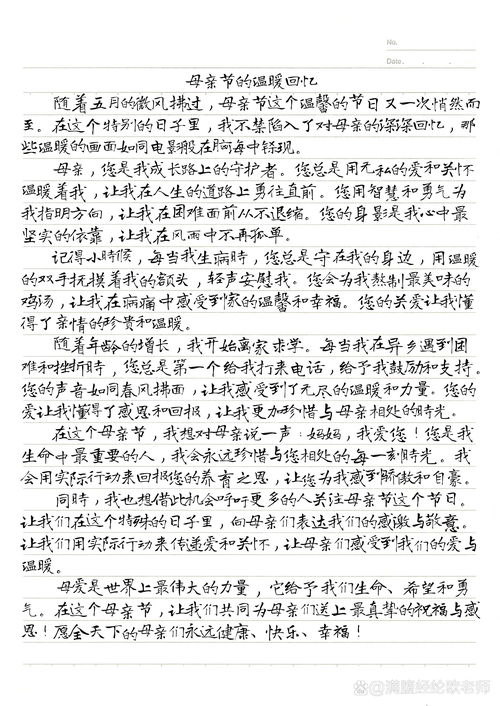 No.
Date. . .
母亲节的温暖回忆
随着五月的微风拂过，母亲节这个温馨的节日又一次悄然而
至。在这个特别的日子里，我不禁陷入了对母亲的深深回忆，那
些温暖的画面如同电影般在脑海中轻现。
母亲，您是我成长路上的守护者。您总是用无私的爱和关怀
温暖着我，让我在人生的道路上勇往直前。您用智慧和勇气为
我指明方向，让我在困难面前从不退缩。您的身影是我心中最
坚实的依靠，让我在风雨中不再孤单。
记得小時候，每当我生病時，您总是守在我的身边，用温暖
的双手抚摸着我的额头，轻声安慰我。您会为我熬制最美味的
鸡汤，让我在病痛中感受到家的温馨和幸福。您的关爱让我懂
得了亲情的珍贵和温暖。
随着年龄的增长，我开始离家求学。每当我在异乡遇到困
难和挫折時，您总是第一个给我打来电话，给予我鼓励和支持。
您的声音如同春风拂面，让我感受到了无尽的温暖和力量。您的
爱让我懂得了感恩和回报，让我更加珍惜与母亲相处的時光。
在这个母亲节，我想对母亲说一声：妈妈，我爱您！您是我
生命中最重要的人，我会永远珍惜与您相处的每一刻時光。我
会用实际行动来回报您的养育之恩，让您为我感到骄傲和自豪。
同時，我也想借此机会呼吁更多的人关注母亲节这个节日。
让我们在这个特殊的日子里，向母亲们表达我们的感激与敬意。
让我们用实际行动来传递爱和关怀，让母亲们感受到我们的爱与
温暖。
母爱是世界上最伟大的力量，它给予我们生命、希望和勇
气。在这个母亲节，让我们共同为母亲们送上最真挚的祝福与感
恩！愿全天下的母亲们永远健康、快乐、幸福！
@满腹经纶欧老师